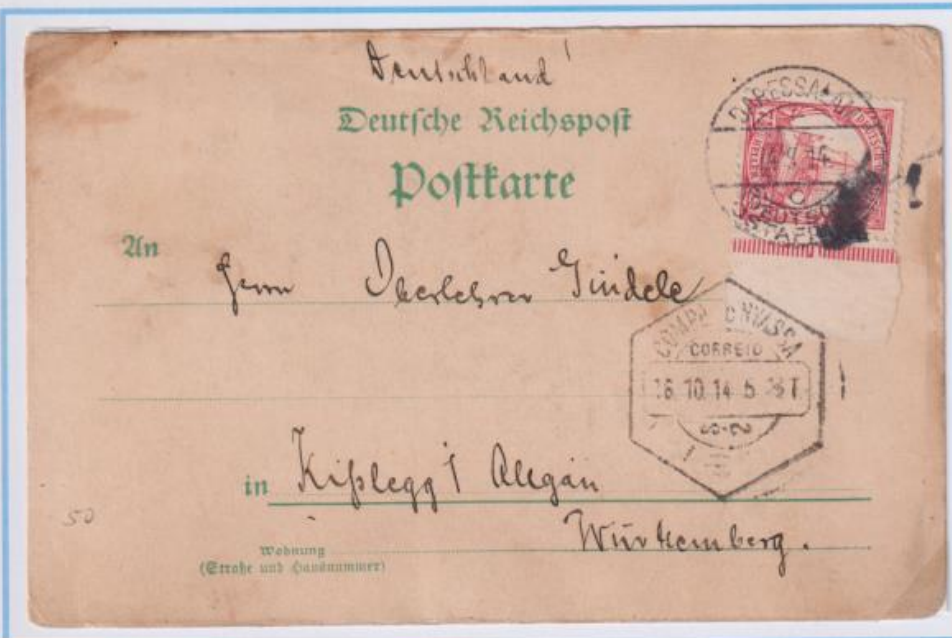 Deutschland!
Deutsche Reichspost
Postkarte
DARESSALAM
DEUTSCH
OSTAFRIKA
An
Herrn Oberlehrer Gindele
COMPA D NYASSA
CORREIO
16.10.14 5
S-2
in Kißlegg i Allgäu
50
Württemberg.
Wohnung
(Straße und Hausnummer)